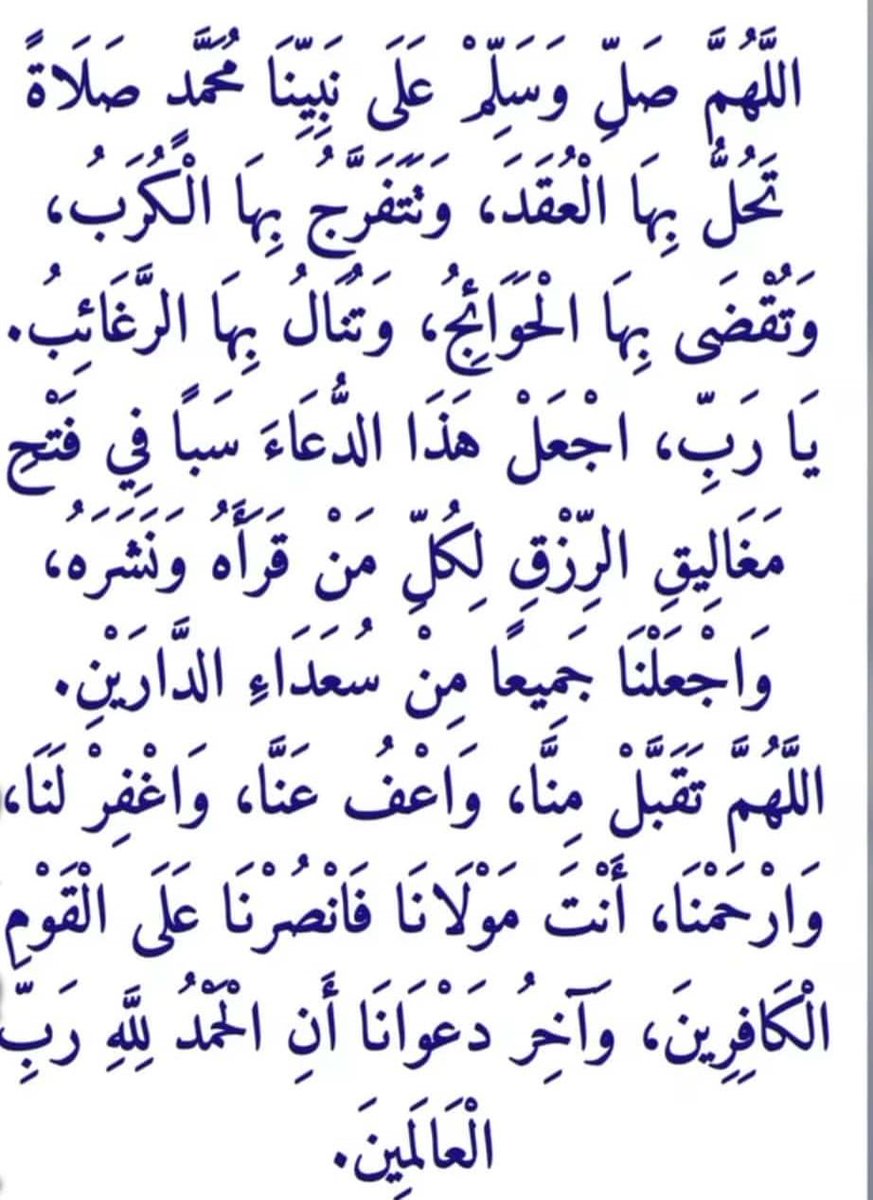 اللَّهُمَّ صَلِّ وَسَلِّمْ عَلَى نَبِيِّنَا مُحَمَّد صَلَاةً
تَحُلُّ بِهَا الْعُقَدَ، وَتَتَفَرَّجُ بِهَا الْكُرَبُ،
وَتُقْضَى بِهَا الْحَوَائِجُ، وَتُنَالُ بِهَا الرَّغَائِبُ.
يَا رَبِّ، اجْعَلْ هَذَا الدُّعَاءَ سَبباً فِي فَتْحِ
مَغَالِيقِ الرِّزْقِ لِكُلِّ مَنْ قَرَأَهُ وَنَشَرَهُ،
وَاجْعَلْنَا جَمِيعًا مِنْ سُعَدَاءِ الدَّارَيْنِ.
اللَّهُمَّ تَقَبَّلْ مِنَّا، وَاعْفُ عَنَّا، وَاغْفِرْ لَنَا،
وَارْحَمْنَا، أَنْتَ مَوْلَانَا فَانْصُرْنَا عَلَى الْقَوْمِ
الْكَافِرِينَ، وَآخِرُ دَعْوَانَا أَنِ الْحَمْدُ لِلَّهِ رَبِّ
الْعَالَمِينَ.